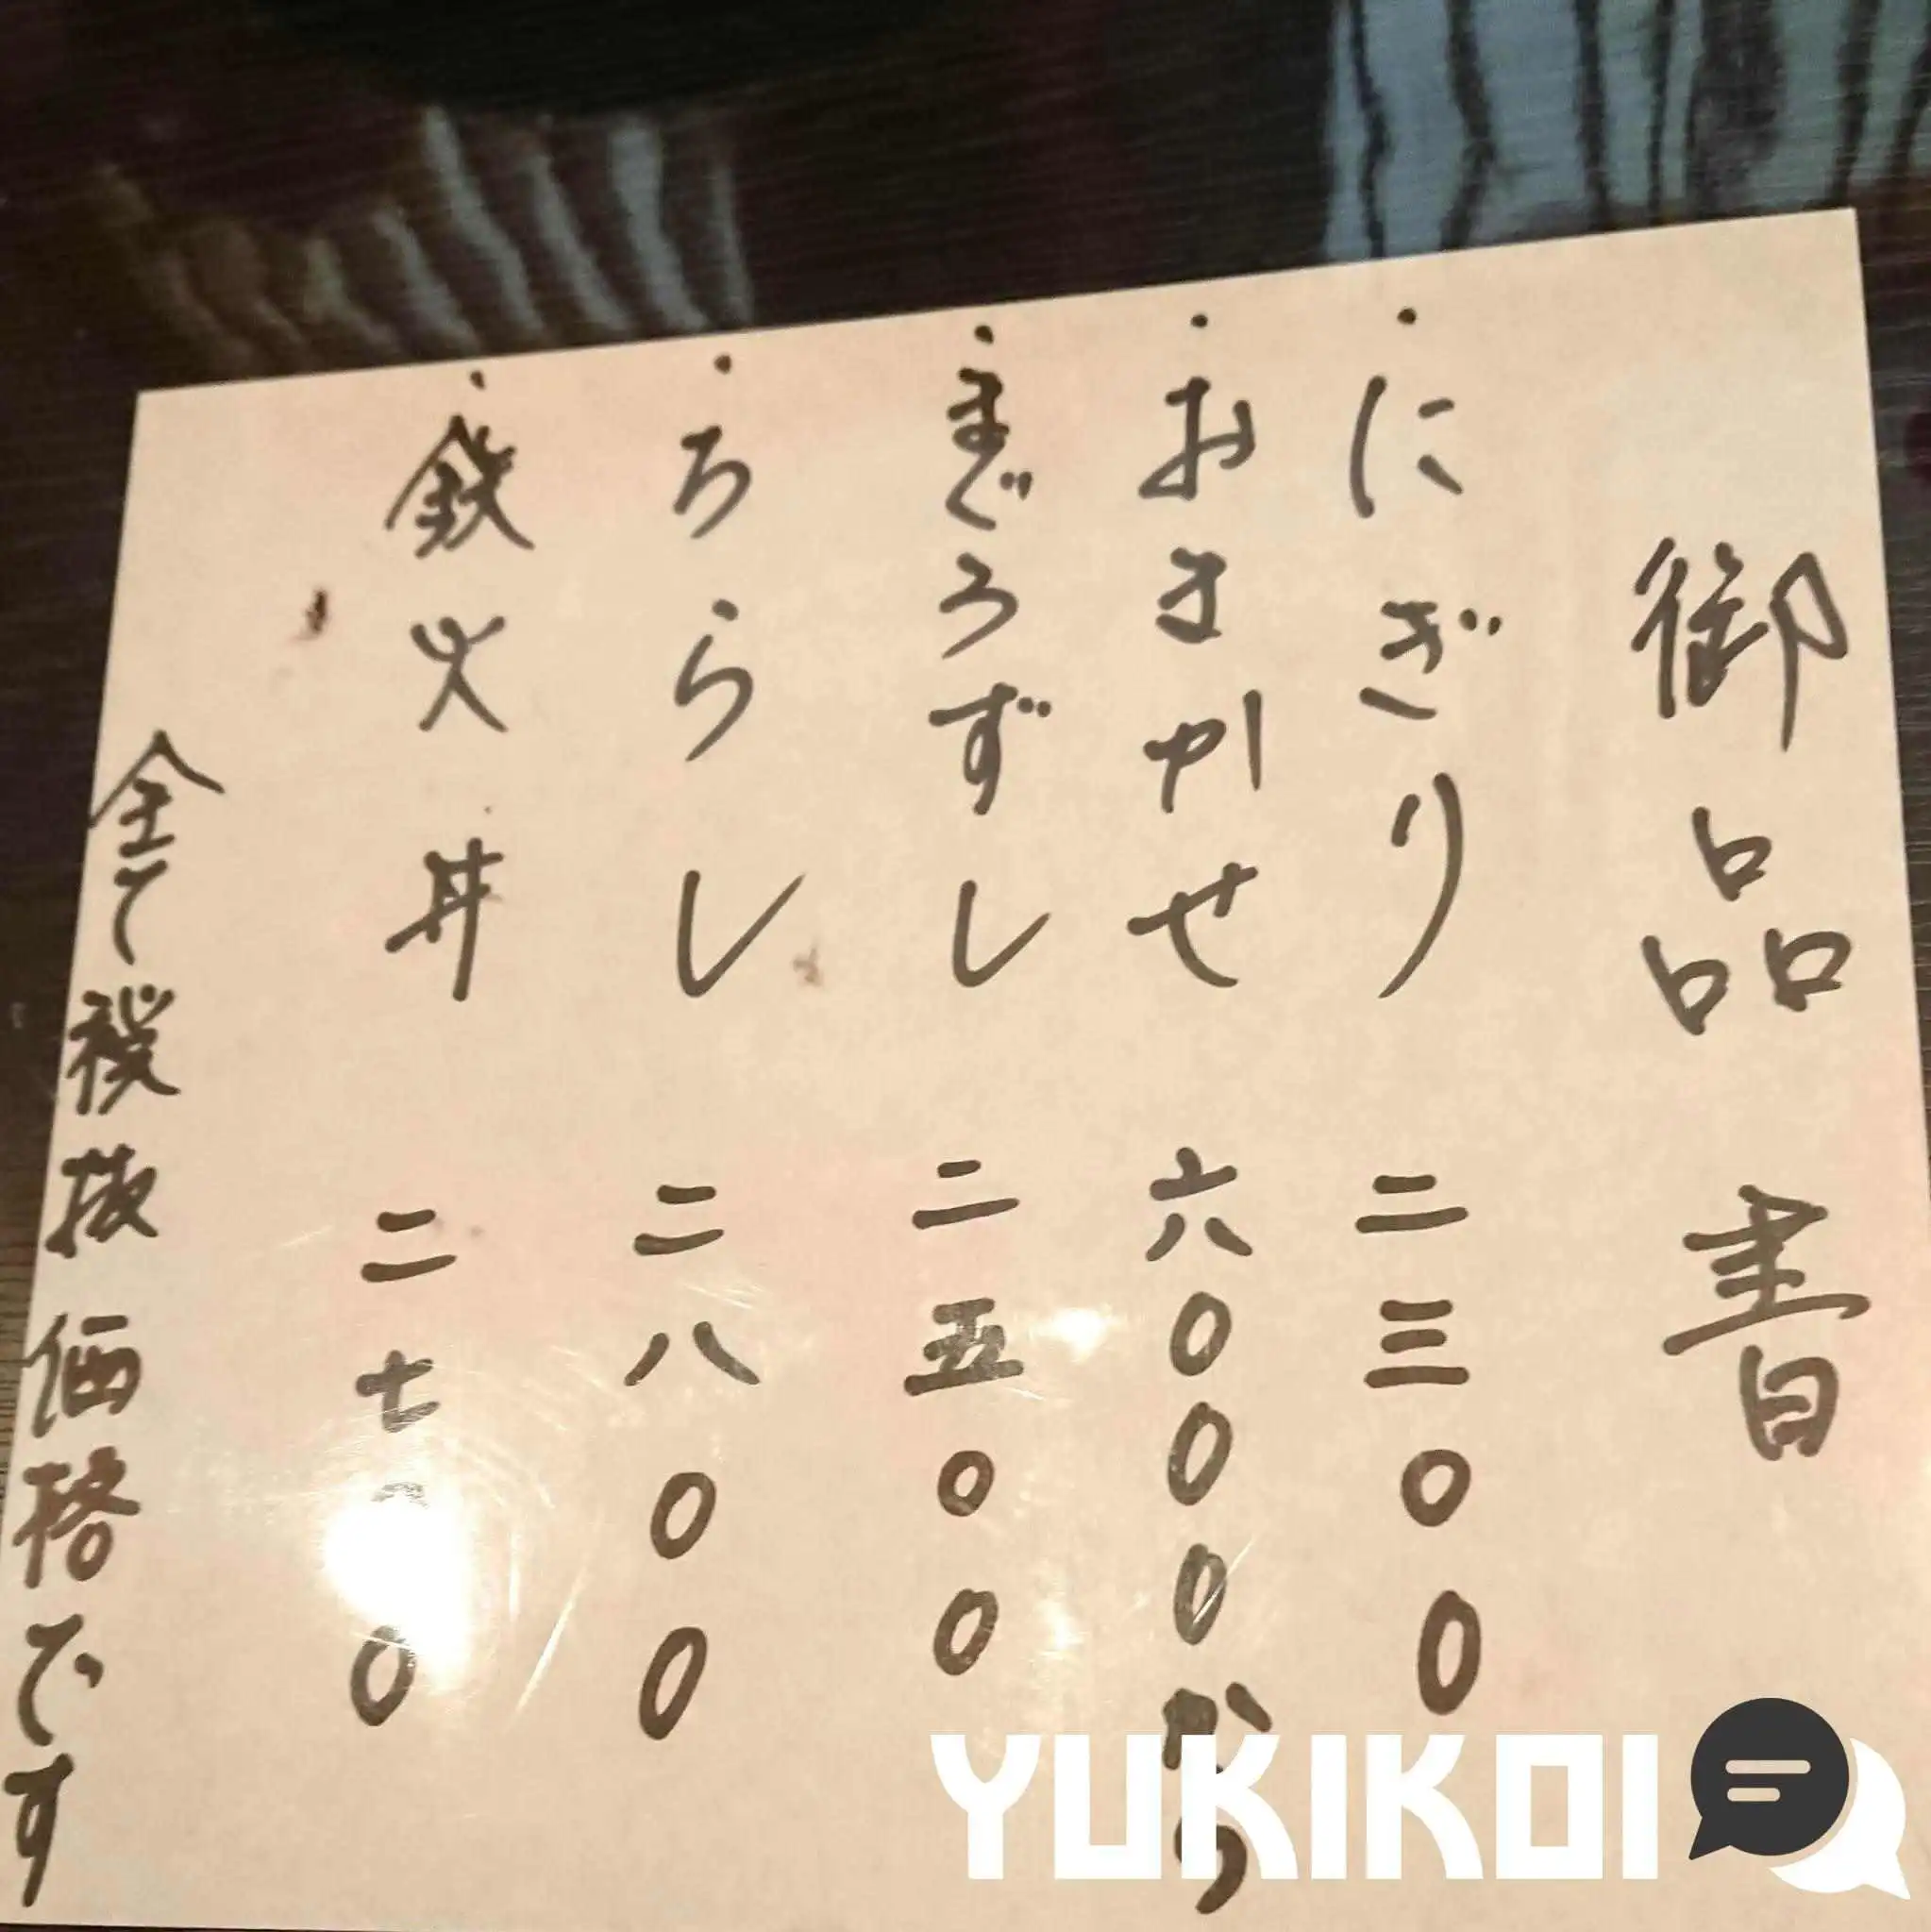 御品書
・にぎり 二三〇〇
・おまかせ 六〇〇〇から
・まぐろずし 二五〇〇
・ちらし 二八〇〇
・鉄火丼 二七〇〇
全て税抜価格です
YUKIKOI